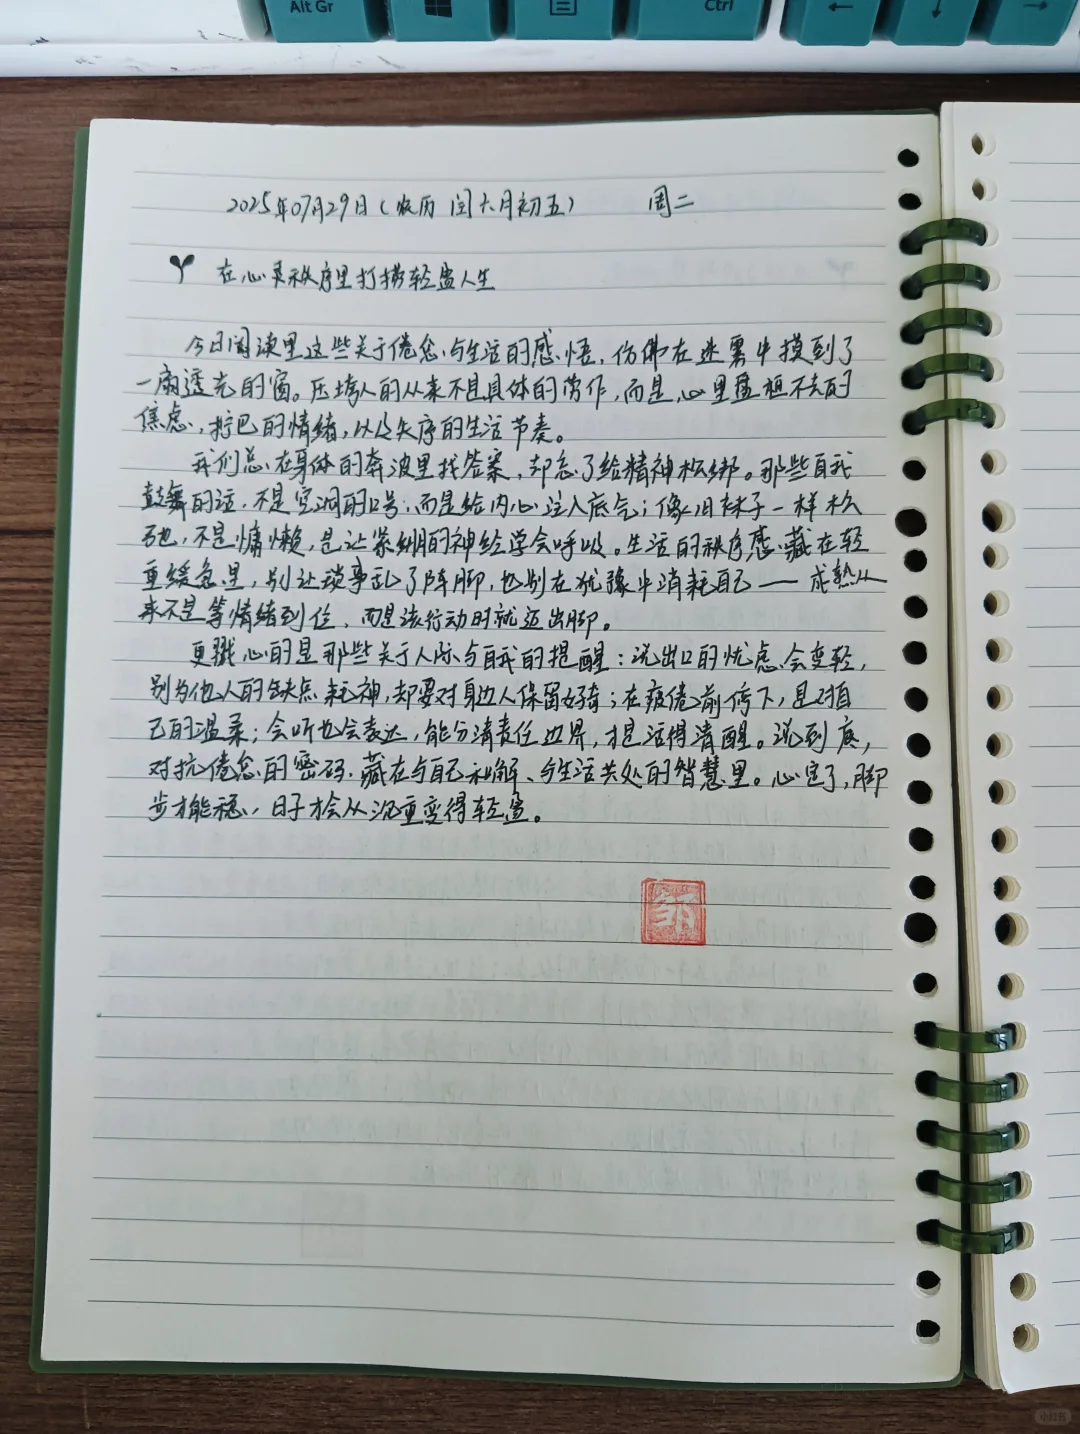 Alt Gr
Ctrl
←
↓
→
2025年07月29日(农历 闰六月初五) 周二
在心灵秩序里打捞轻盈人生
今日阅读里这些关于倦怠与生活的感悟,仿佛在迷雾中摸到了
一扇透光的窗。压垮人的从来不是具体的劳作,而是心里盘桓不去的
焦虑,拧巴的情绪,以及失序的生活节奏。
我们总在身体的奔波里找答案,却忘了给精神松绑。那些自我
鼓舞的话,不是空洞的口号,而是给内心注入底气;像旧袜子一样松
弛,不是慵懒,是让紧绷的神经学会呼吸。生活的秩序感藏在轻
重缓急里,别让琐事乱了阵脚,也别在犹豫中消耗自己——成熟从
来不是等情绪到位,而是该行动时就迈出脚。
更戳心的是那些关于人际与自我的提醒:说出口的忧虑会变轻,
别为他人的缺点耗神,却要对身边人保留好奇;在疲倦前停下,是对自
己的温柔;会听也会表达,能分清责任边界,才是活得清醒。说到底,
对抗倦怠的密码,藏在与自己和解、与生活共处的智慧里。心定了,脚
步才能稳,日子才会从沉重变得轻盈。
邹
小红书